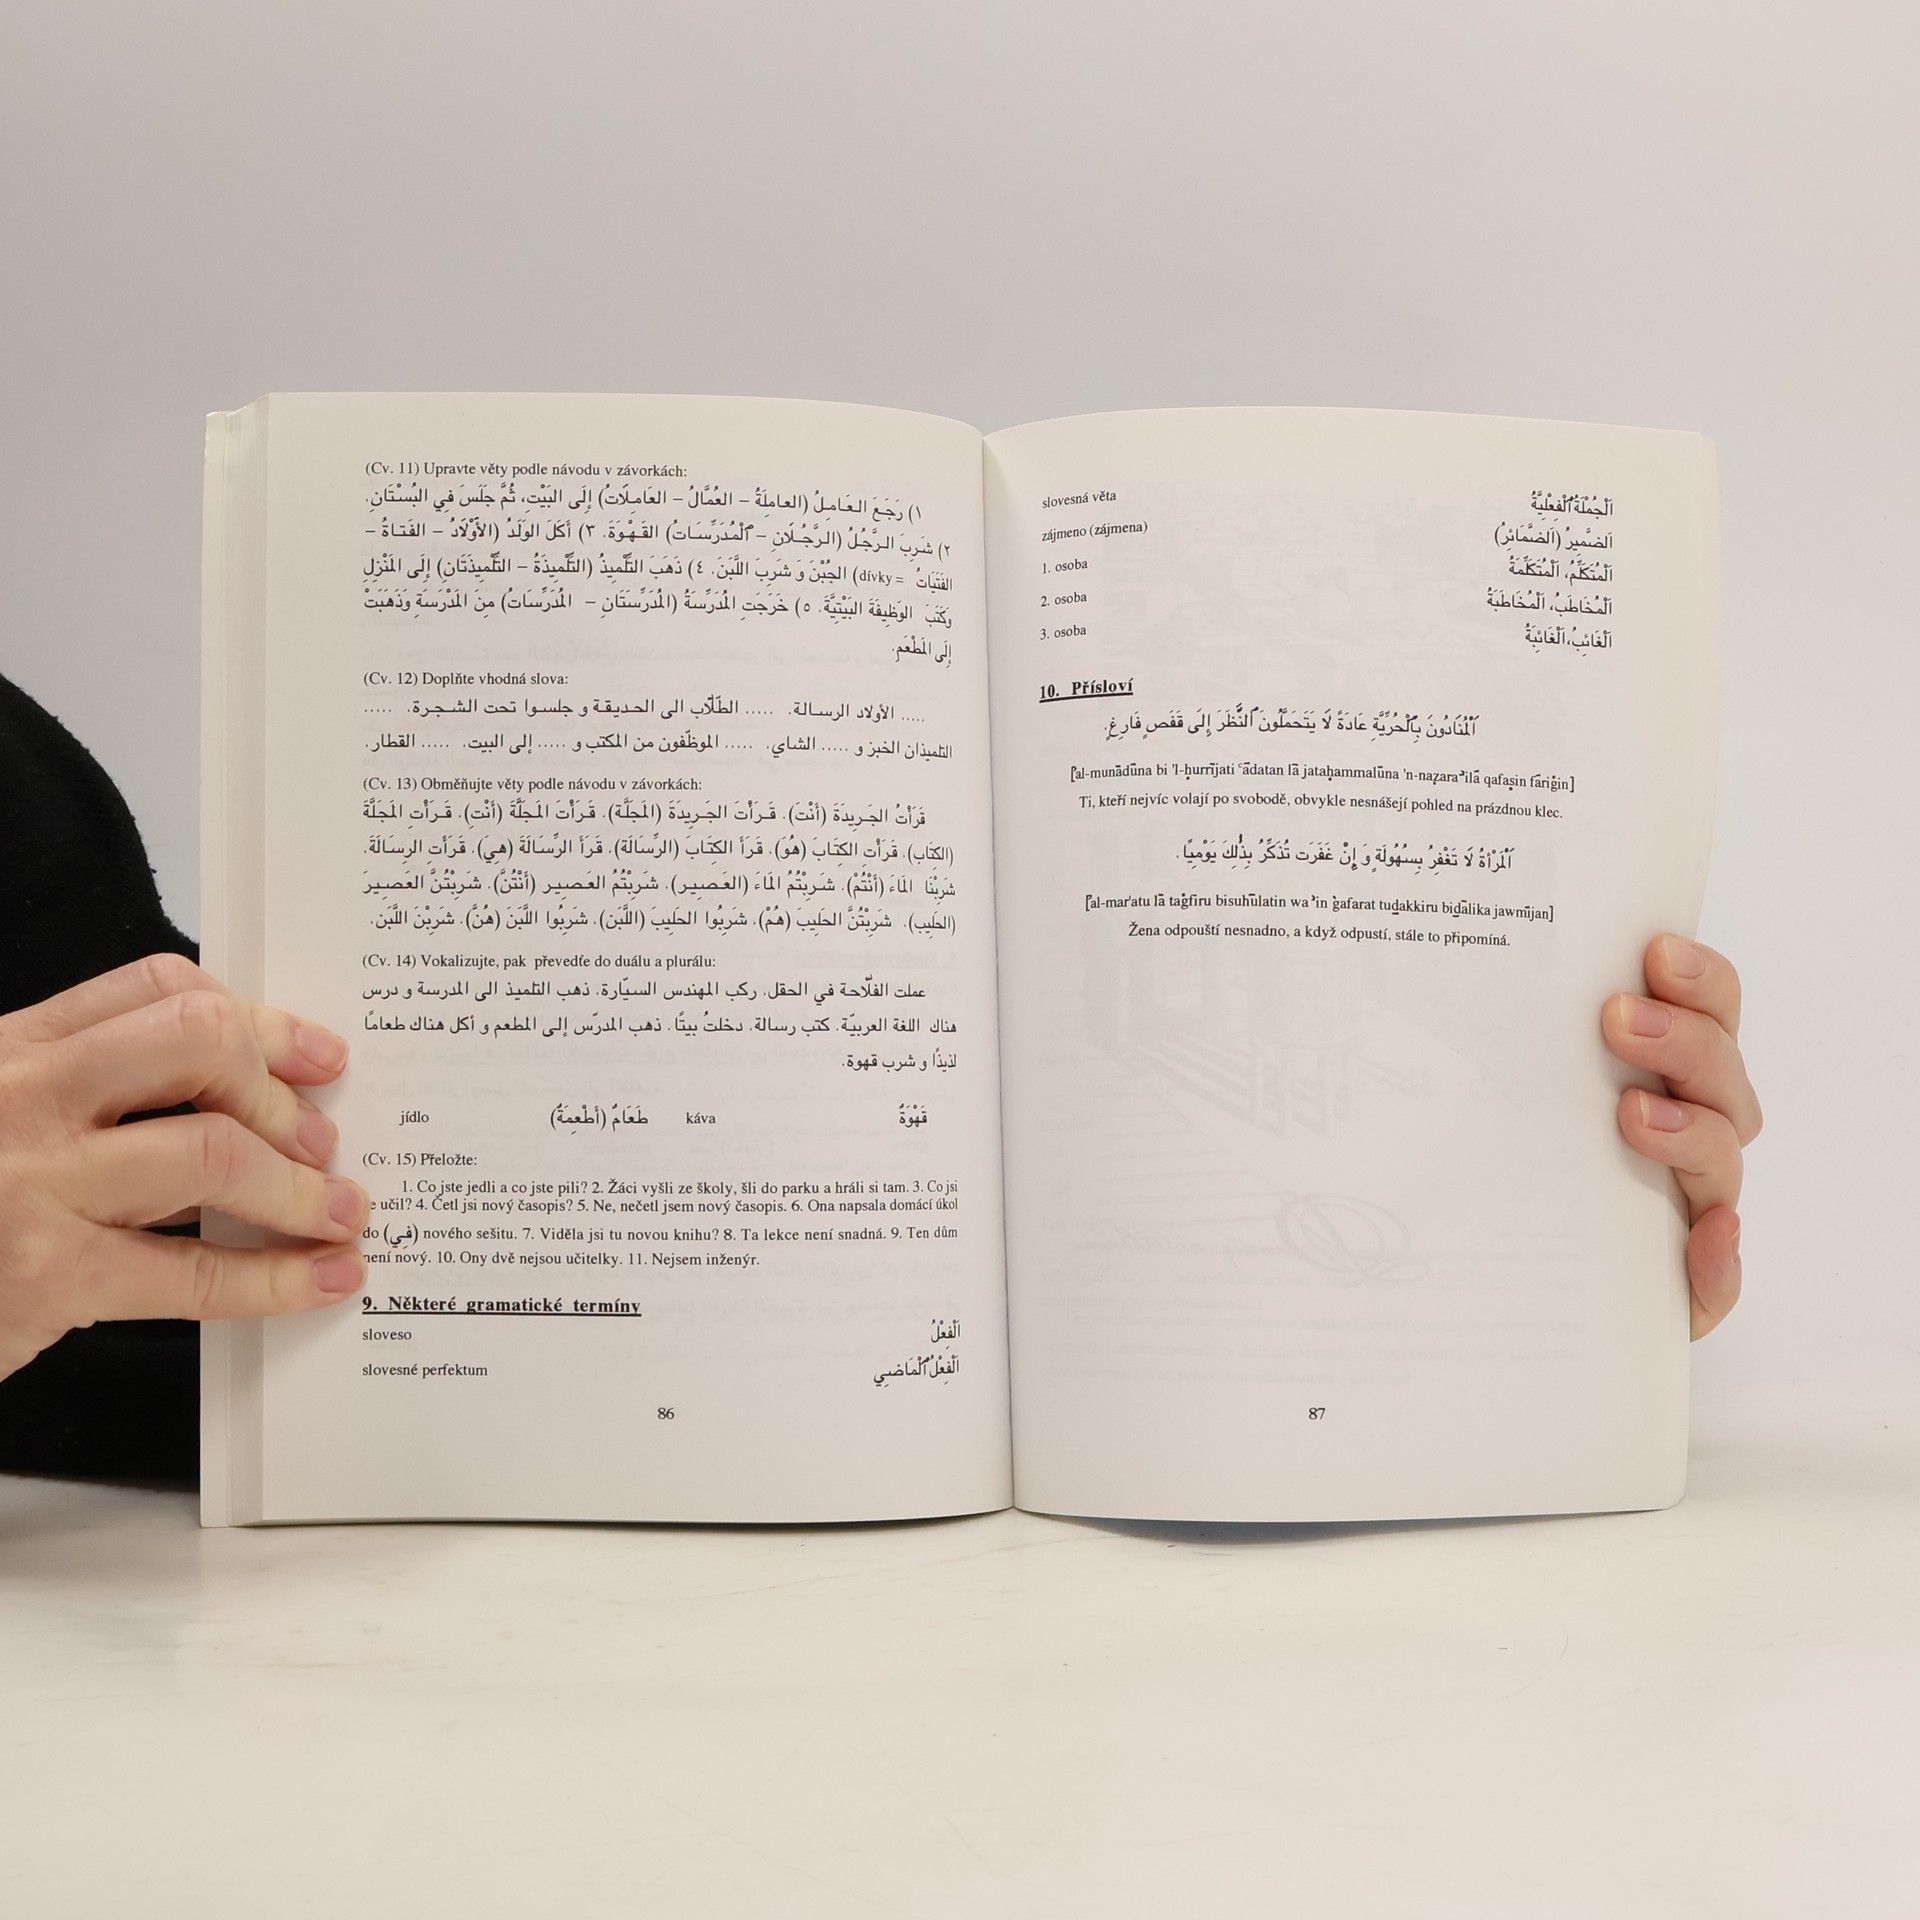 (Cv. 11) Upravte věty podle návodu v závorkách:
١) رَجَعَ العَامِلُ (العامِلَةُ – العُمَّالُ – العَامِلَاتُ) إِلَى البَيْتِ، ثُمَّ جَلَسَ فِي البُسْتَانِ.
٢) شَرِبَ الرَّجُلُ (الرَّجُلَانِ – ٱلْمُدَرِّسَاتُ) القَهْوَةَ. ٣) أَكَلَ الوَلَدُ (الأَوْلَادُ – الفَتَاةُ –
الفَتَيَاتُ = dívky) الجُبْنَ وَ شَرِبَ اللَّبَنَ. ٤) ذَهَبَ التِّلْمِيذُ (التِّلْمِيذَةُ – التِّلْمِيذَتَانِ) إِلَى المَنْزِلِ
وَكَتَبَ الوَظِيفَةَ البَيْتِيَّةَ. ٥) خَرَجَتِ المُدَرِّسَةُ (المُدَرِّسَتَانِ – المُدَرِّسَاتُ) مِنَ المَدْرَسَةِ وَذَهَبَتْ
إِلَى المَطْعَمِ.
(Cv. 12) Doplňte vhodná slova:
..... الأولاد الرسالة. ..... الطّلّاب الى الحديقة و جلسوا تحت الشجرة. .....
التلميذان الخبز و ..... الشاي. ..... الموظّفون من المكتب و ..... إلى البيت. ..... القطار.
(Cv. 13) Obměňujte věty podle návodu v závorkách:
قَرَأْتُ الجَرِيدَةَ (أَنْتَ). قَرَأْتَ الجَرِيدَةَ (المَجَلَّة). قَرَأْتَ المَجَلَّةَ (أَنْتِ). قَرَأْتِ المَجَلَّةَ
(الكِتَاب). قَرَأْتِ الكِتَابَ (هُوَ). قَرَأَ الكِتَابَ (الرِّسَالَة). قَرَأَ الرِّسَالَةَ (هِيَ). قَرَأَتِ الرِسَالَةَ.
شَرِبْنَا المَاءَ (أَنْتُمْ). شَرِبْتُمُ المَاءَ (العَصِير). شَرِبْتُمُ العَصِير (أَنْتُنَّ). شَرِبْتُنَّ العَصِيرَ
(الحَلِيب). شَرِبْتُنَّ الحَلِيبَ (هُمْ). شَرِبُوا الحَلِيبَ (اللَّبَن). شَرِبُوا اللَّبَنَ (هُنَّ). شَرِبْنَ اللَّبَنَ.
(Cv. 14) Vokalizujte, pak převedťe do duálu a plurálu:
عملت الفلّاحة في الحقل. ركب المهندس السيّارة. ذهب التلميذ الى المدرسة و درس
هناك اللغة العربيّة. كتب رسالة. دخلتُ بيتًا. ذهب المدرّس إلى المطعم و أكل هناك طعامًا
لذيذًا و شرب قهوة.
jídlo طَعَامٌ (أَطْعِمَةٌ) káva قَهْوَةٌ
(Cv. 15) Přeložte:
1. Co jste jedli a co jste pili? 2. Žáci vyšli ze školy, šli do parku a hráli si tam. 3. Co jsi
e učil? 4. Četl jsi nový časopis? 5. Ne, nečetl jsem nový časopis. 6. Ona napsala domácí úkol
do (فِي) nového sešitu. 7. Viděla jsi tu novou knihu? 8. Ta lekce není snadná. 9. Ten dům
není nový. 10. Ony dvě nejsou učitelky. 11. Nejsem inženýr.
9. Některé gramatické termíny
sloveso اَلْفِعْلُ
slovesné perfektum اَلْفِعْلُ ٱلْمَاضِي
86
slovesná věta اَلْجُمْلَةُ ٱلْفِعْلِيَّةُ
zájmeno (zájmena) اَلضَّمِيرُ (اَلضَّمَائِرُ)
1. osoba اَلْمُتَكَلِّمُ، اَلْمُتَكَلِّمَةُ
2. osoba اَلْمُخَاطَبُ، اَلْمُخَاطَبَةُ
3. osoba اَلْغَائِبُ، اَلْغَائِبَةُ
10. Přísloví
اَلْمُنَادُونَ بِٱلْحُرِّيَّةِ عَادَةً لَا يَتَحَمَّلُونَ ٱلنَّظَرَ إِلَى قَفَصٍ فَارِغٍ.
[ʾal-munādūna bi 'l-ḥurrījati ʿādatan lā jataḥammalūna 'n-naẓara ʾilā qafaṣin fāriġin]
Ti, kteří nejvíc volají po svobodě, obvykle nesnášejí pohled na prázdnou klec.
اَلْمَرْأَةُ لَا تَغْفِرُ بِسُهُولَةٍ وَ إِنْ غَفَرَت تُذَكِّرُ بِذٰلِكَ يَوْمِيًا.
[ʾal-mar'atu lā taġfiru bisuhūlatin wa ʾin ġafarat tuḏakkiru biḏālika jawmījan]
Žena odpouští nesnadno, a když odpustí, stále to připomíná.
87